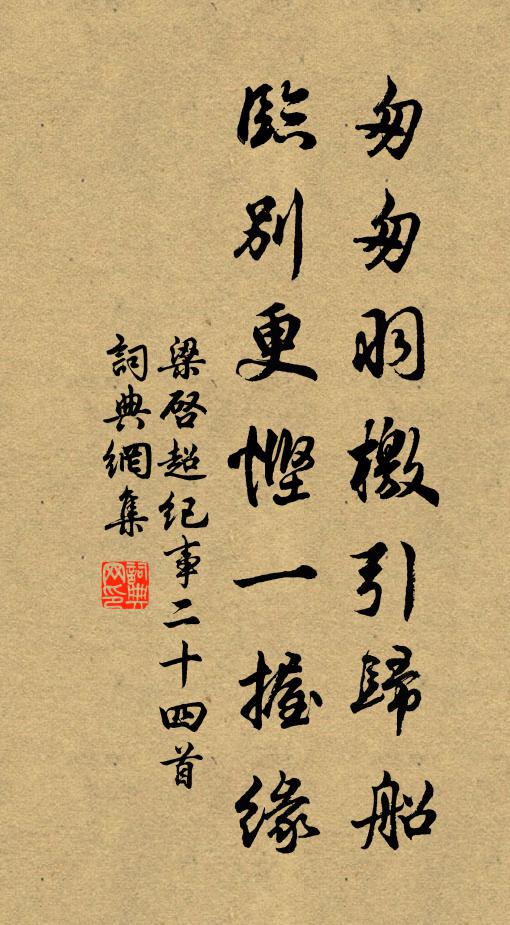 匆匆羽檄引歸船
臨別更慳一握緣
梁啓超紀事二十四首
詞典網集
詞典网印